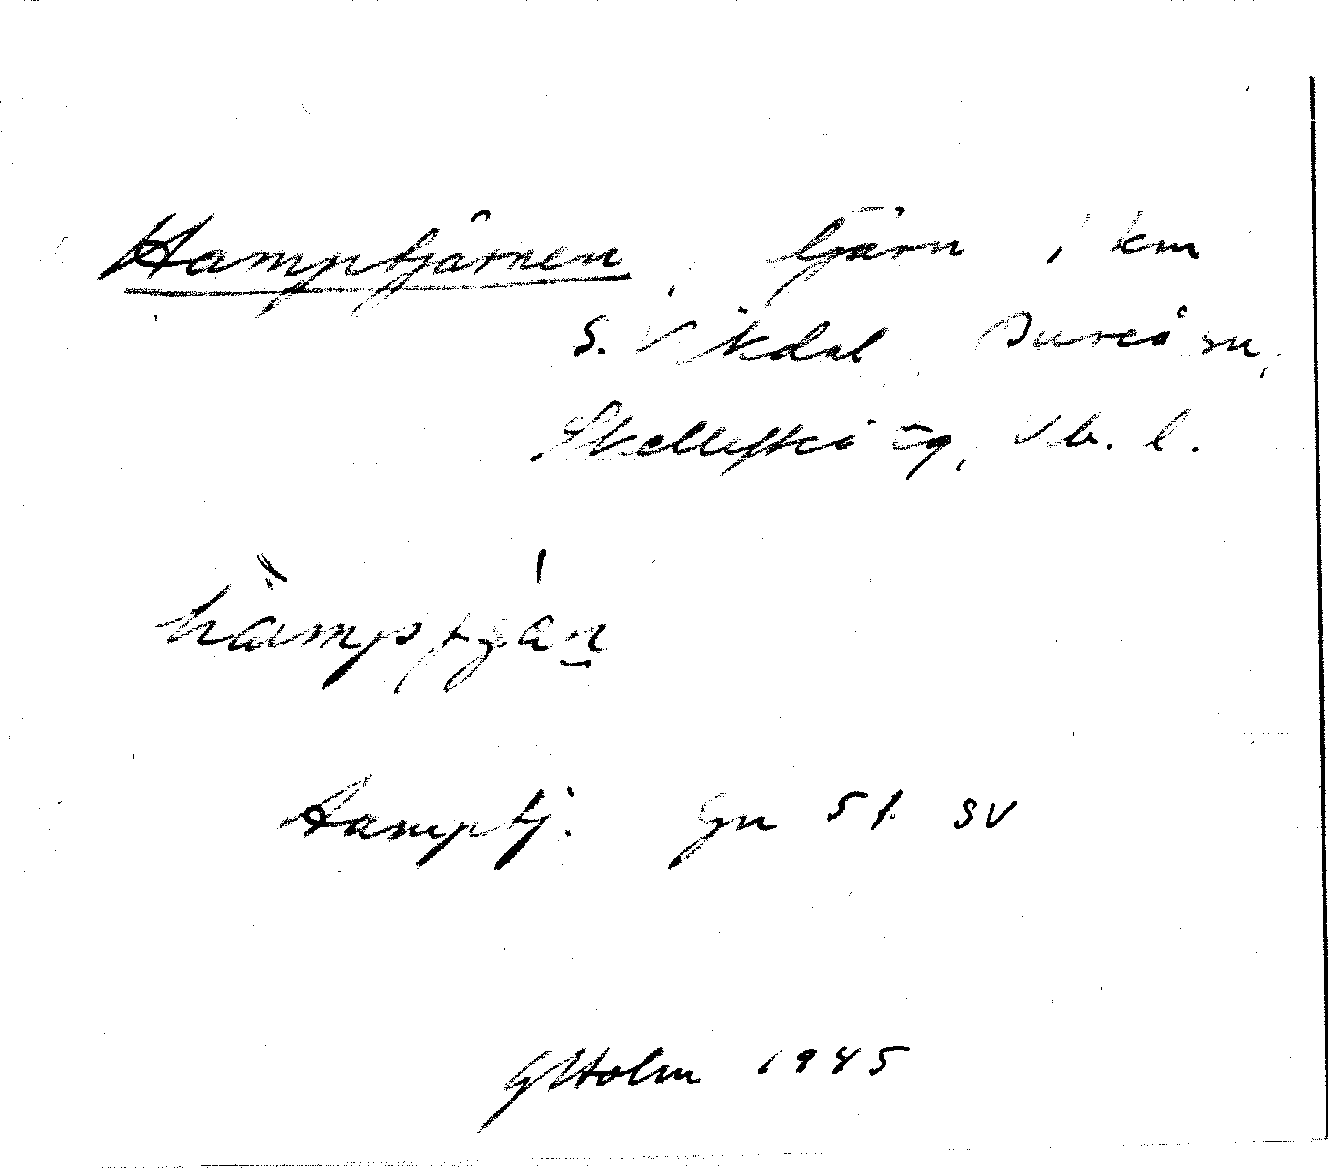 Hamptjärnen, tjärn 1 km
S. Vikdal, Bureå sn,
Skellefteå tg, Vb. l.
hàmptján
Hamptj. Gn 51 SV
G Holm 1945